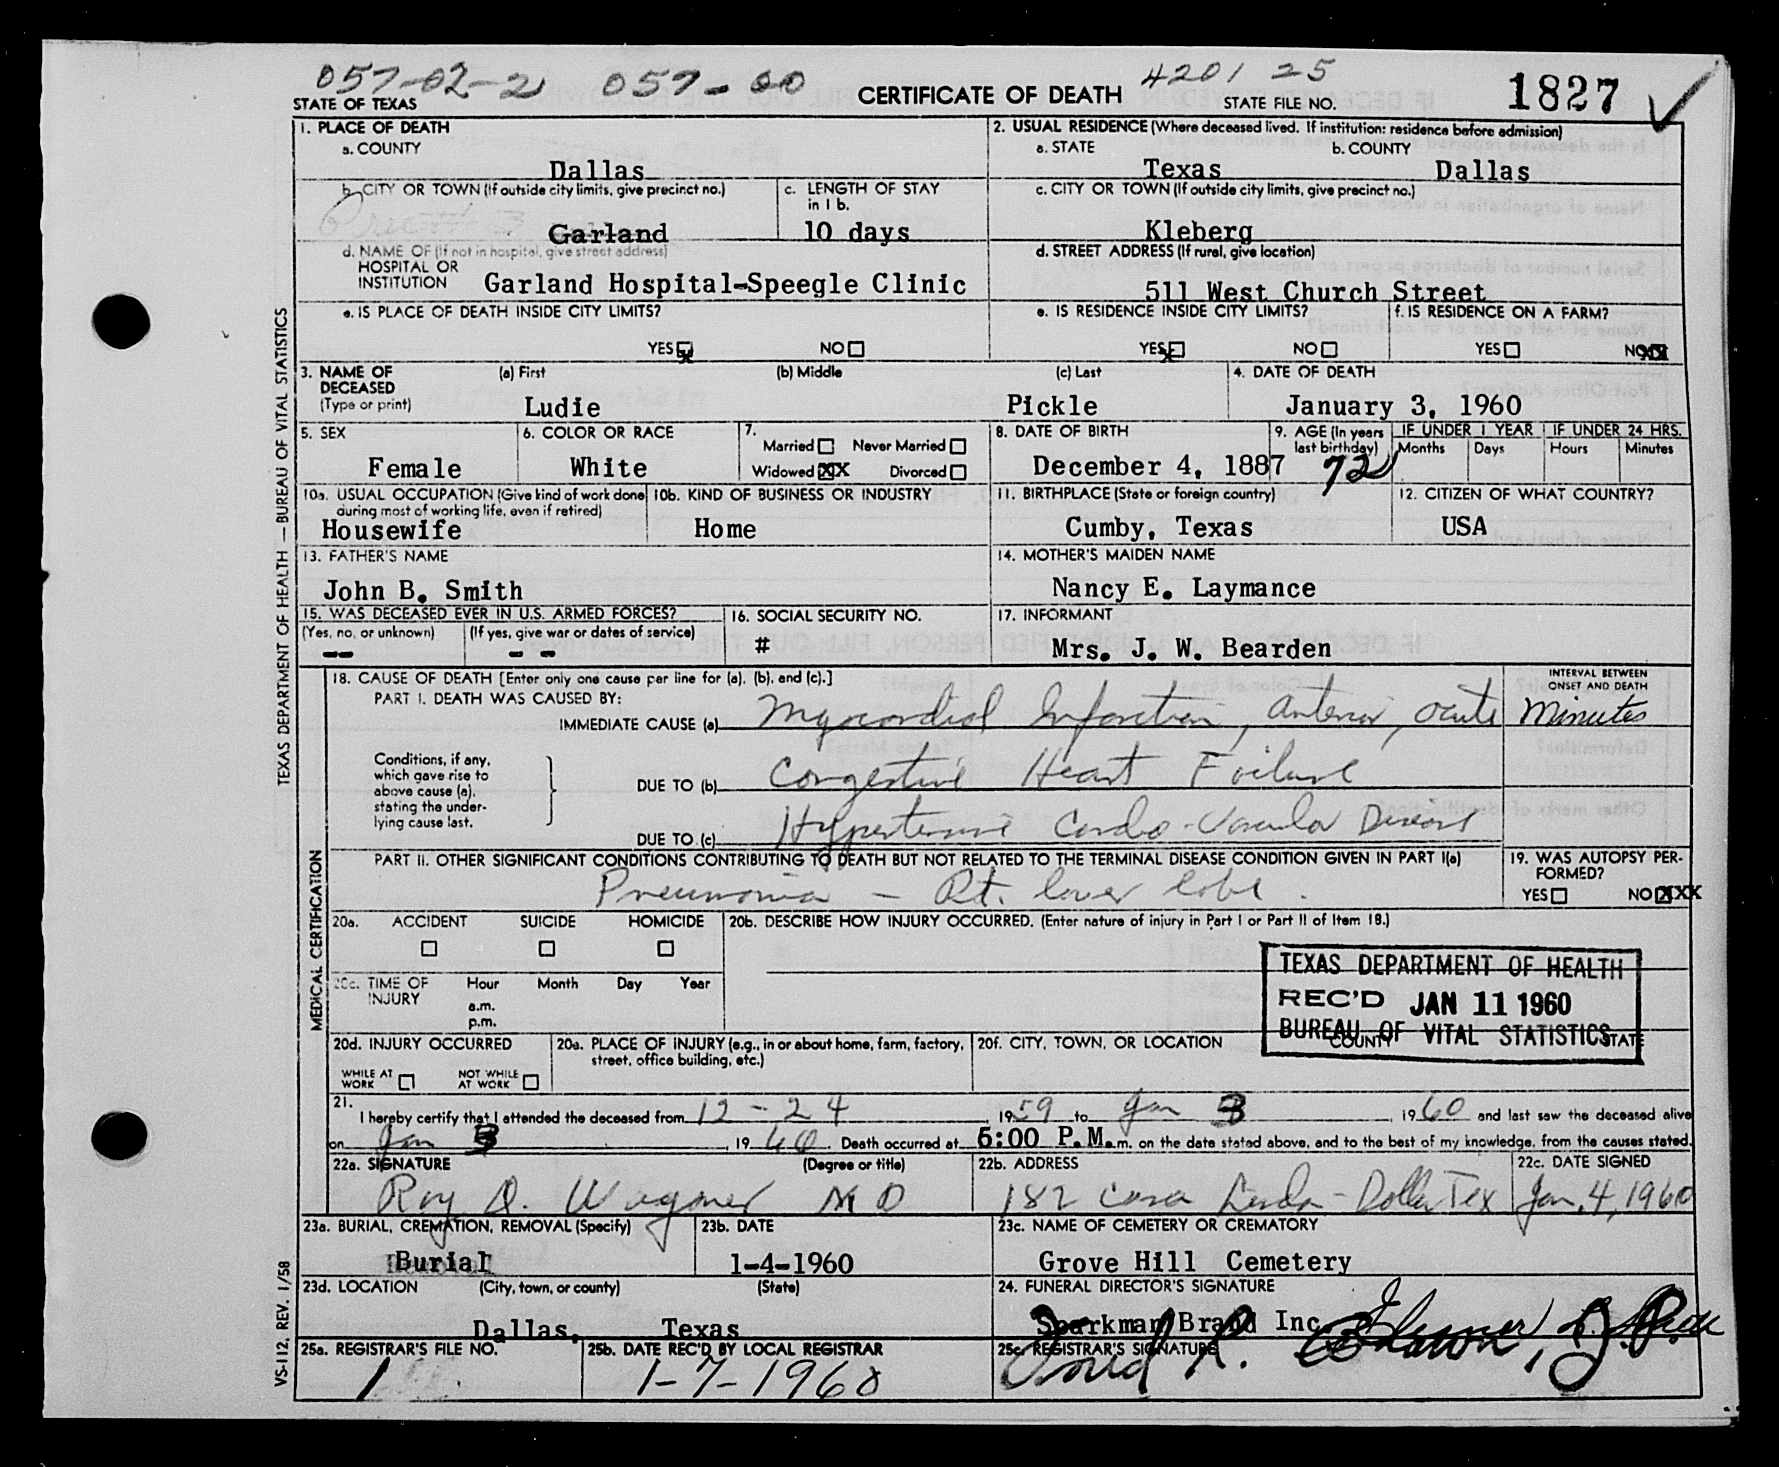 057-02-2 057-00 4201 25
STATE OF TEXAS CERTIFICATE OF DEATH STATE FILE NO. 1827
1. PLACE OF DEATH 2. USUAL RESIDENCE (Where deceased lived. If institution: residence before admission)
a. COUNTY Dallas a. STATE Texas b. COUNTY Dallas
b. CITY OR TOWN (If outside city limits, give precinct no.) Garland c. LENGTH OF STAY in 1 b. 10 days c. CITY OR TOWN (If outside city limits, give precinct no.) Kleberg
d. NAME OF (If not in hospital, give street address) HOSPITAL OR INSTITUTION Garland Hospital-Speegle Clinic d. STREET ADDRESS (If rural, give location) 511 West Church Street
e. IS PLACE OF DEATH INSIDE CITY LIMITS? e. IS RESIDENCE INSIDE CITY LIMITS? f. IS RESIDENCE ON A FARM?
YES X NO YES X NO YES NO XX
3. NAME OF DECEASED (Type or print) (a) First Ludie (b) Middle (c) Last Pickle 4. DATE OF DEATH January 3, 1960
5. SEX Female 6. COLOR OR RACE White 7. Married Never Married Widowed XX Divorced 8. DATE OF BIRTH December 4, 1887 9. AGE (In years last birthday) 72 IF UNDER 1 YEAR Months Days IF UNDER 24 HRS. Hours Minutes
10a. USUAL OCCUPATION (Give kind of work done during most of working life, even if retired) Housewife 10b. KIND OF BUSINESS OR INDUSTRY Home 11. BIRTHPLACE (State or foreign country) Cumby, Texas 12. CITIZEN OF WHAT COUNTRY? USA
13. FATHER'S NAME John B. Smith 14. MOTHER'S MAIDEN NAME Nancy E. Laymance
15. WAS DECEASED EVER IN U.S. ARMED FORCES? (Yes, no, or unknown) -- (If yes, give war or dates of service) - - 16. SOCIAL SECURITY NO. # 17. INFORMANT Mrs. J. W. Bearden
18. CAUSE OF DEATH [Enter only one cause per line for (a), (b), and (c).] INTERVAL BETWEEN ONSET AND DEATH
PART I. DEATH WAS CAUSED BY:
IMMEDIATE CAUSE (a) Myocardial Infarction, anterior, acute Minutes
Conditions, if any, which gave rise to above cause (a), stating the underlying cause last.
DUE TO (b) Congestive Heart Failure
DUE TO (c) Hypertensive Cardio-Vascular Disease
PART II. OTHER SIGNIFICANT CONDITIONS CONTRIBUTING TO DEATH BUT NOT RELATED TO THE TERMINAL DISEASE CONDITION GIVEN IN PART I(a) 19. WAS AUTOPSY PERFORMED?
Pneumonia - Rt. lower lobe. YES NO XXX
20a. ACCIDENT SUICIDE HOMICIDE 20b. DESCRIBE HOW INJURY OCCURRED. (Enter nature of injury in Part I or Part II of Item 18.)
20c. TIME OF INJURY Hour a.m. p.m. Month Day Year
TEXAS DEPARTMENT OF HEALTH
REC'D JAN 11 1960
BUREAU OF VITAL STATISTICS
20d. INJURY OCCURRED WHILE AT WORK NOT WHILE AT WORK 20e. PLACE OF INJURY (e.g., in or about home, farm, factory, street, office building, etc.) 20f. CITY, TOWN, OR LOCATION COUNTY STATE
21. I hereby certify that I attended the deceased from 12-24, 1959 to Jan 3, 1960 and last saw the deceased alive
on Jan 3, 1960. Death occurred at 6:00 P.M. m. on the date stated above, and to the best of my knowledge, from the causes stated.
22a. SIGNATURE (Degree or title) Roy D. Wagner MD 22b. ADDRESS 182 Casa Linda - Dallas Tex 22c. DATE SIGNED Jan. 4, 1960
23a. BURIAL, CREMATION, REMOVAL (Specify) Burial 23b. DATE 1-4-1960 23c. NAME OF CEMETERY OR CREMATORY Grove Hill Cemetery
23d. LOCATION (City, town, or county) Dallas, (State) Texas 24. FUNERAL DIRECTOR'S SIGNATURE Sparkman Brand Inc.
25a. REGISTRAR'S FILE NO. 1 25b. DATE REC'D BY LOCAL REGISTRAR 1-7-1960 25c. REGISTRAR'S SIGNATURE
TEXAS DEPARTMENT OF HEALTH — BUREAU OF VITAL STATISTICS
MEDICAL CERTIFICATION
VS-112, REV. 1/58